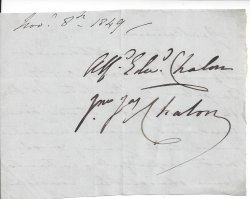 Nov.r 8th 1849
Alf.d Edw.d Chalon
Jno Jas Chalon